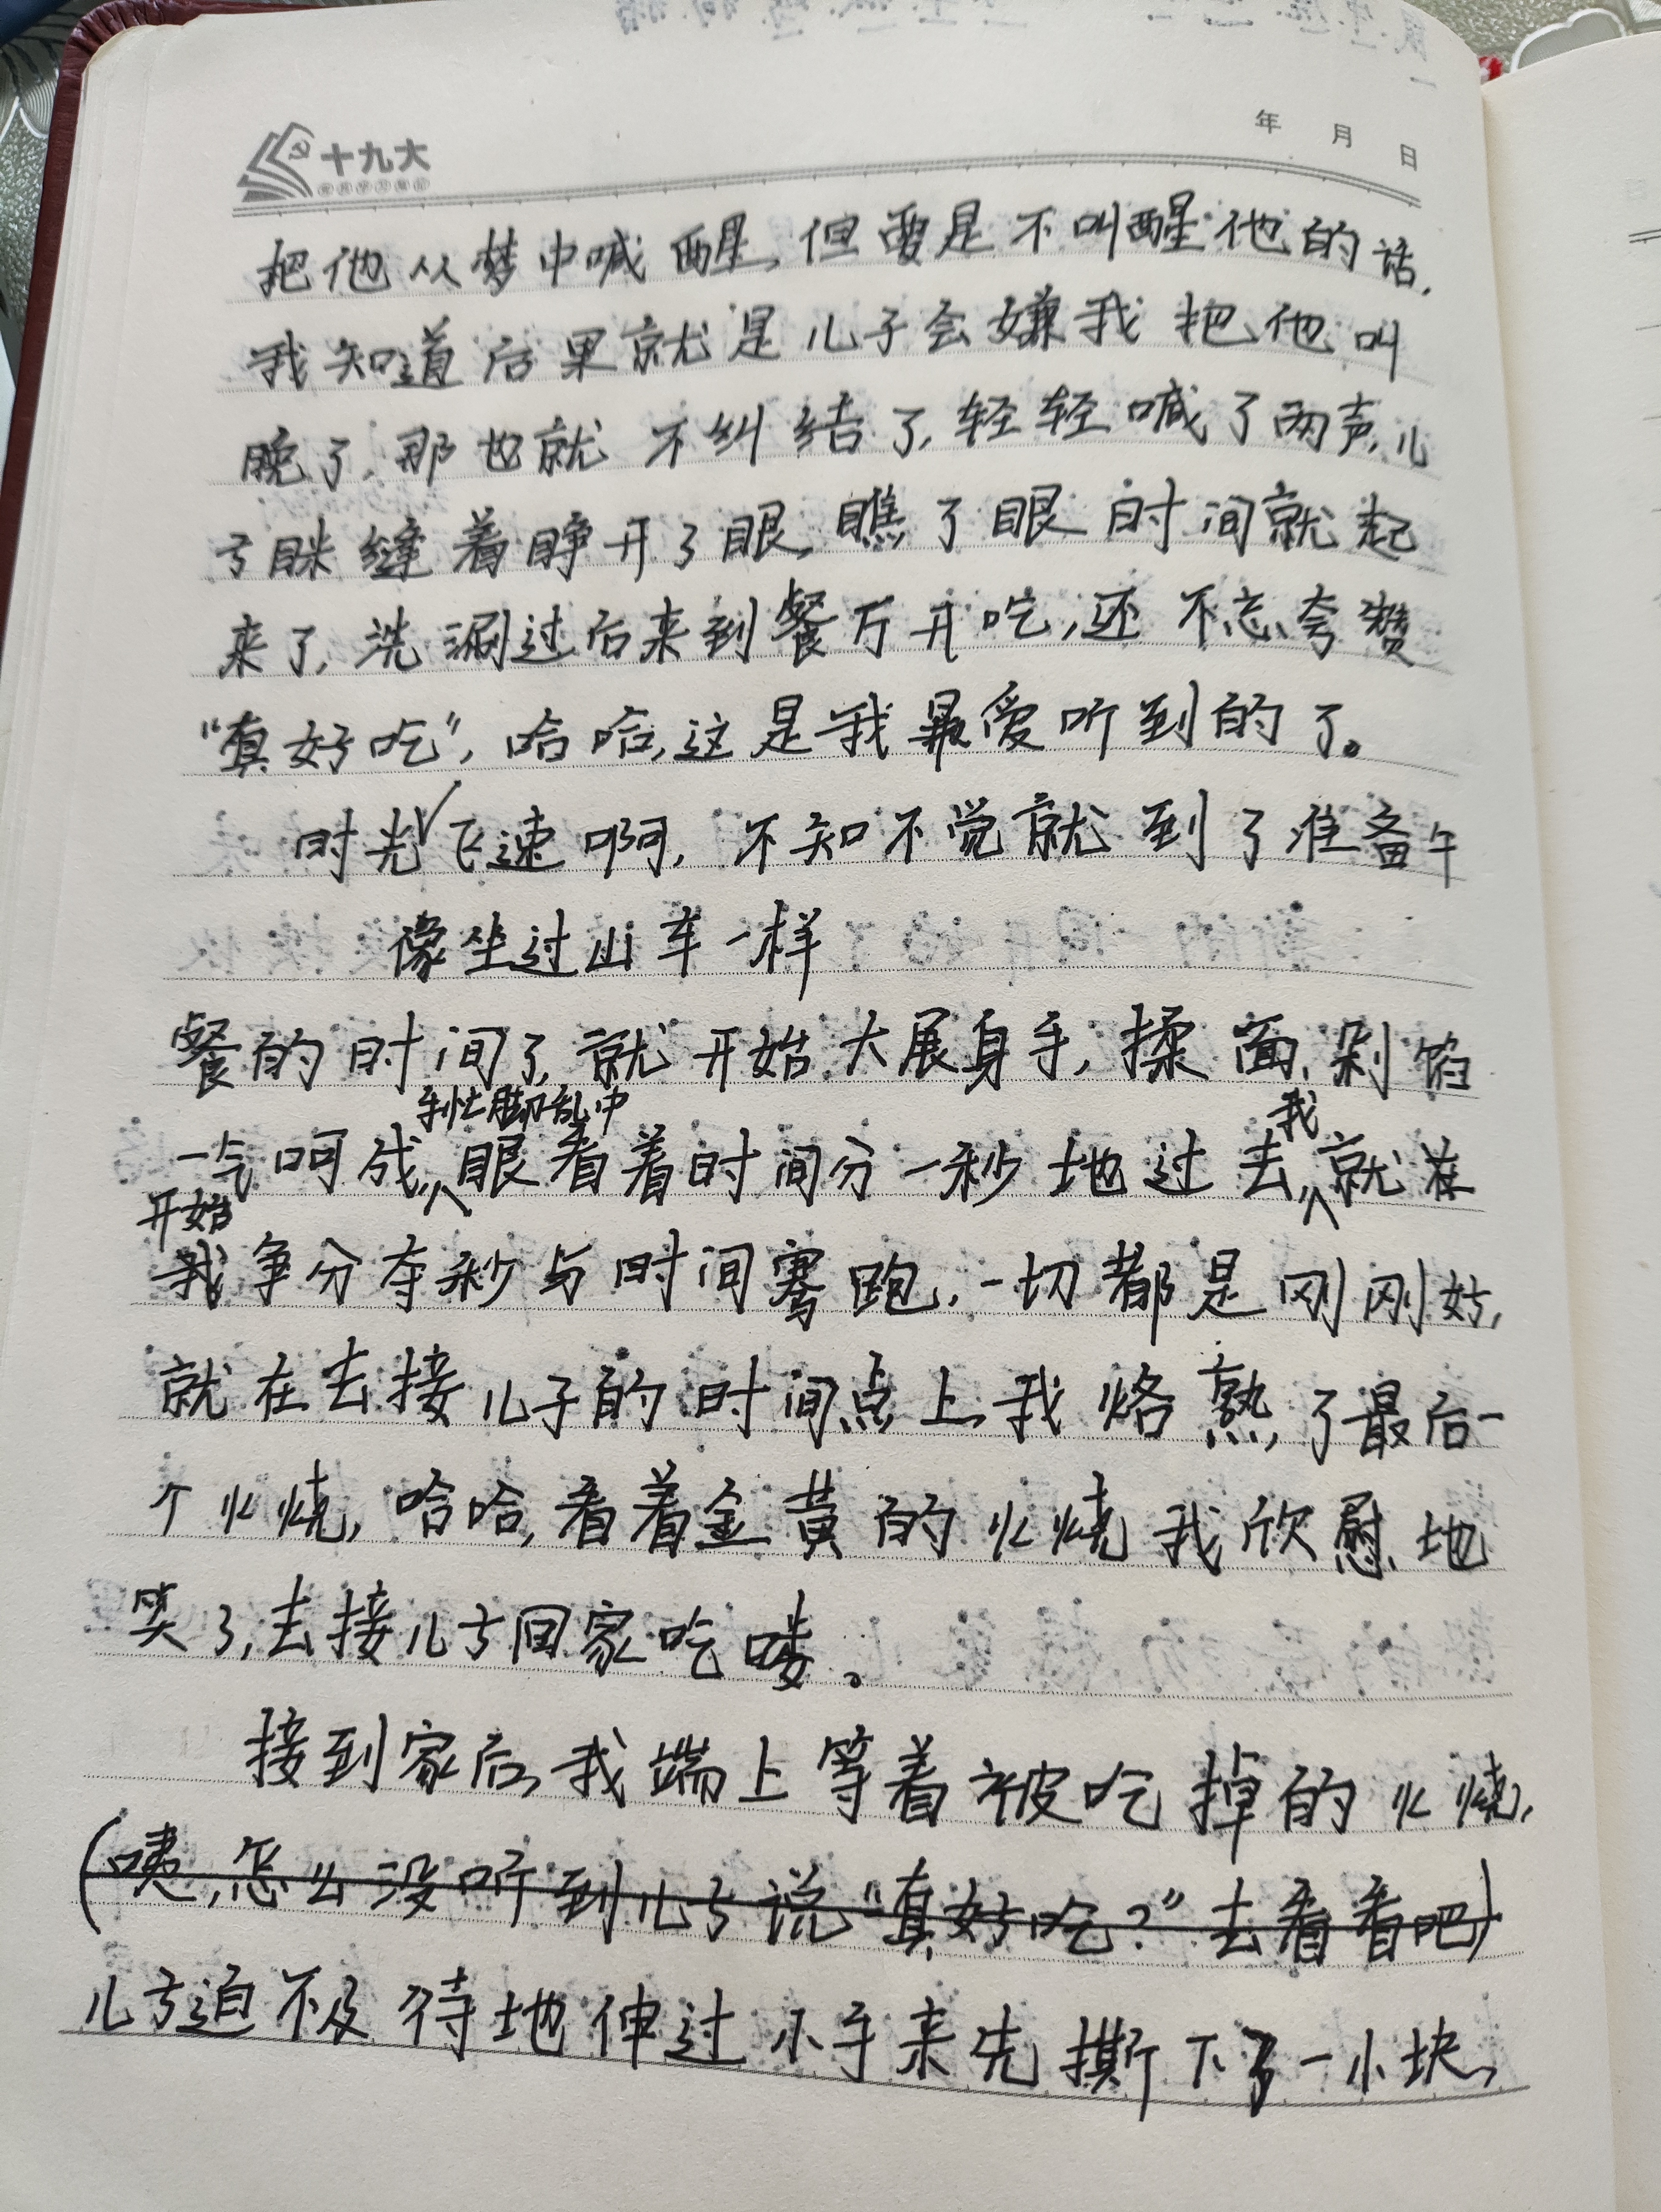 十九大
年 月 日
把他从梦中喊醒,但要是不叫醒他的话,
我知道后果就是儿子会嫌我把他叫
晚了,那也就不纠结了,轻轻喊了两声,儿
子眯缝着睁开了眼,瞧了眼时间就起
来了,洗涮过后来到餐厅开吃,还不忘夸赞
“真好吃”,哈哈,这是我最爱听到的了。
时光飞速啊,不知不觉就到了准备午
像坐过山车一样
餐的时间了,就开始大展身手,揉面、剁馅
手忙脚乱中 我
一气呵成,眼看着时间分一秒地过去,就在
开始
我争分夺秒与时间赛跑,一切都是刚刚好,
就在去接儿子的时间点上,我烙熟了最后一
个火烧,哈哈,看着金黄的火烧我欣慰地
笑了,去接儿子回家吃喽。
接到家后,我端上等着被吃掉的火烧,
(咦,怎么没听到儿子说“真好吃?”去看看吧)
儿子迫不及待地伸过小手来先撕下了一小块,